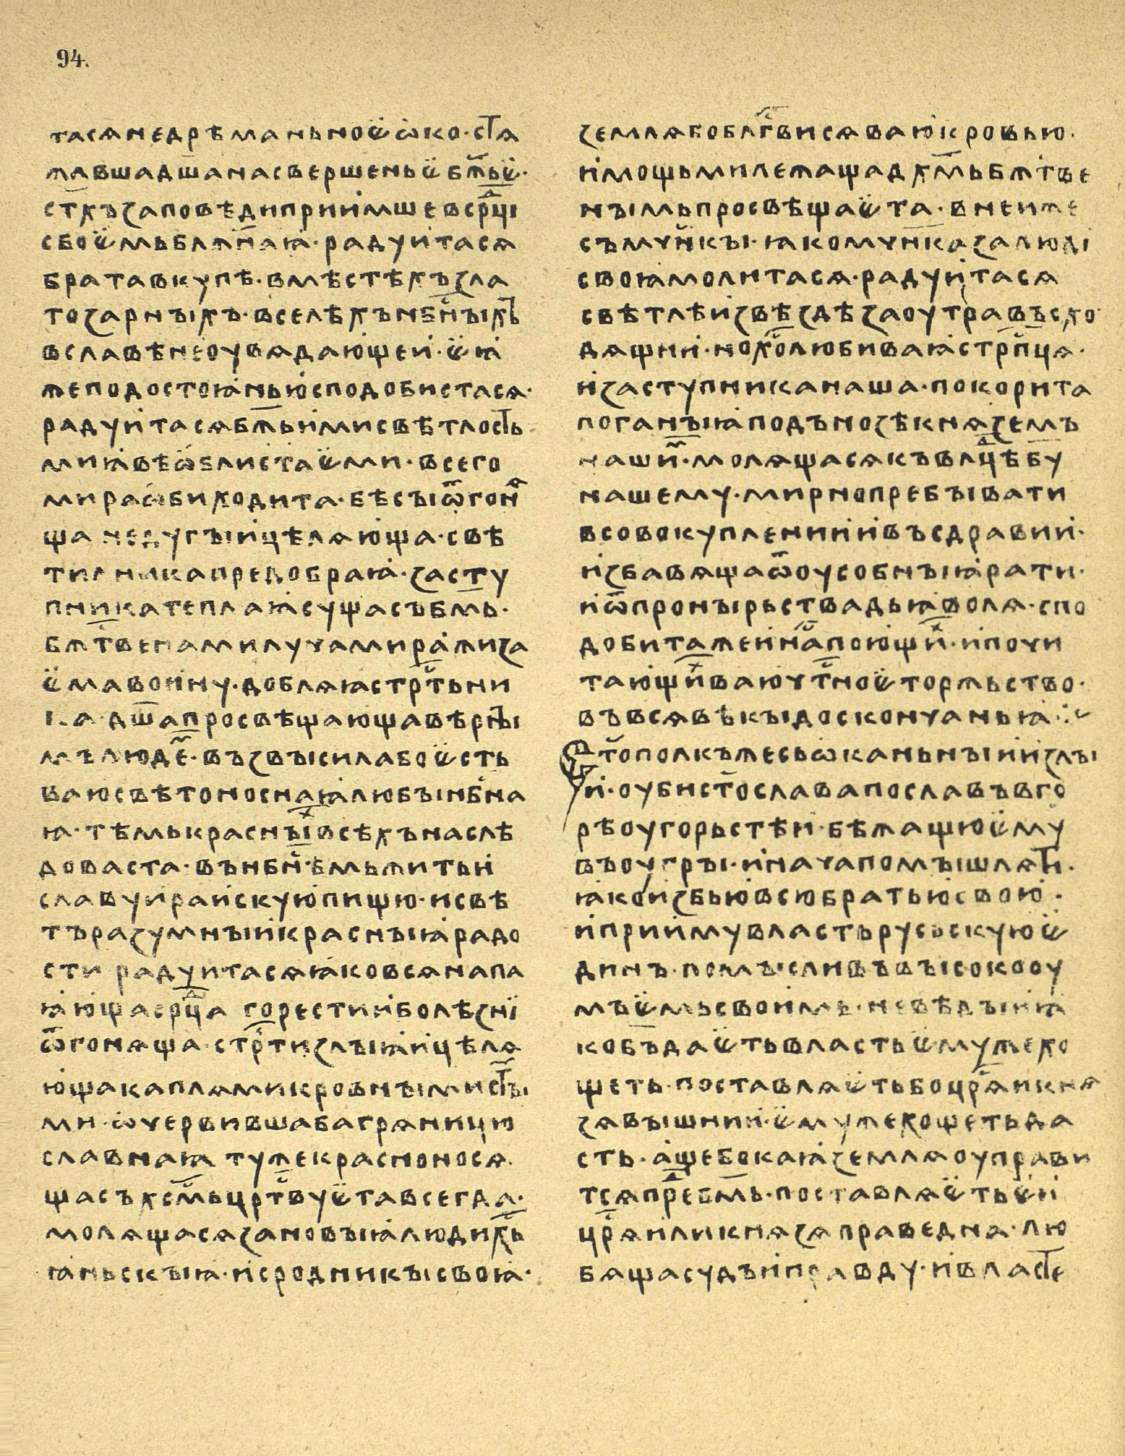 94.
тасянедрѣманьноѥѡко·стя
жавшадш҃анасвершеньѥбжьѥ·
стхъзаповѣдиприимшевсрⷣци
своѥмьблж҃наꙗ·радуитася
братавкупѣ·вмѣстѣхъзла
тозарныхъ·вселѣхънбныхъ
вславѣнеоувядающеи·ѥꙗ
жеподостоꙗньюсподобистася·
радуитасябжьимисвѣтлость
миꙗвѣѡблистаѥми·всего
мираѡбиходита·бѣсыѿгоня
щанедугыицѣляюща·свѣ
тилникапредобраꙗ·засту
пникатеплаꙗсущасъбмь·
бжтвенамилучамиражиза
ѥмавоину·добляꙗстртьни
ка·дш҃апросвѣщающавѣрны
мълюдеⷨ·възвысилабоѥсть
ваюсвѣтоноснаꙗлюбынбна
ꙗ·тѣмькрасныхвсѣхънаслѣ
доваста·вънбнѣмьжитьи
славуираискуюпищю·исвѣ
търазумныикрасныꙗрадо
сти радуитасяꙗковсянапа
ꙗющасрⷣца горестииболѣзнї
ѿгоняща·стртизлыꙗицѣля
ющакаплямикровнымист҃ы
ми·ѡчервившабагряницю
славнаꙗ тужекраснонося
щасъхсмьцртвуѥтавсегда·
молящасязановыꙗлюдихь
ꙗньскыꙗ·исродникысвоꙗ·
землябоблгⷭвисяваюкровью·
имощьмилежащадх҃мьбжтве
нымьпросвѣщаѥта·внеиже
съмчнкы·ꙗкомчн҃казалюді
своꙗмолитася·радуитася
свѣтлѣизвѣздѣзаоутравъсхо
дящии·нохⷭолюбиваꙗстрпца·
изаступниканаша·покорита
поганыꙗподънозѣкняземъ
нашиⷨ·молящасякъвлцⷣѣбу
нашему·мирнопребывати
всовокуплениииивъсдравии·
избавящаѿоусобныꙗрати·
иѿпронырьствадьꙗволя·спо
добитажеинⷭапоющиⷯ·ипочи
тающиⷯваючтⷭноѥторжьство·
въвсявѣкыдосконѹаньꙗ·
Стополкъжесьѡканьныиизлы
и·оубистославапославъвго
рѣоугорьстѣи·бѣжащюѥму
въоугры·иначапомышляти·
ꙗкоизбьювсюбратьюсвою·
иприимувластьрусьскуюѥ
динъ·помысливъвысокооу
мьѥмьсвоимь·невѣдыиꙗ
кобъдаѥтьвластьѥмужехо
щеть·поставляѥтьбоцряикня
зявышнии·ѥмужехощетьда
сть·ащебокаꙗземляоуправи
тсяпрⷣебм҃ь·поставляѥтьѥи
цряиликнязяправедна·лю
бящасудъиправду·ивласте